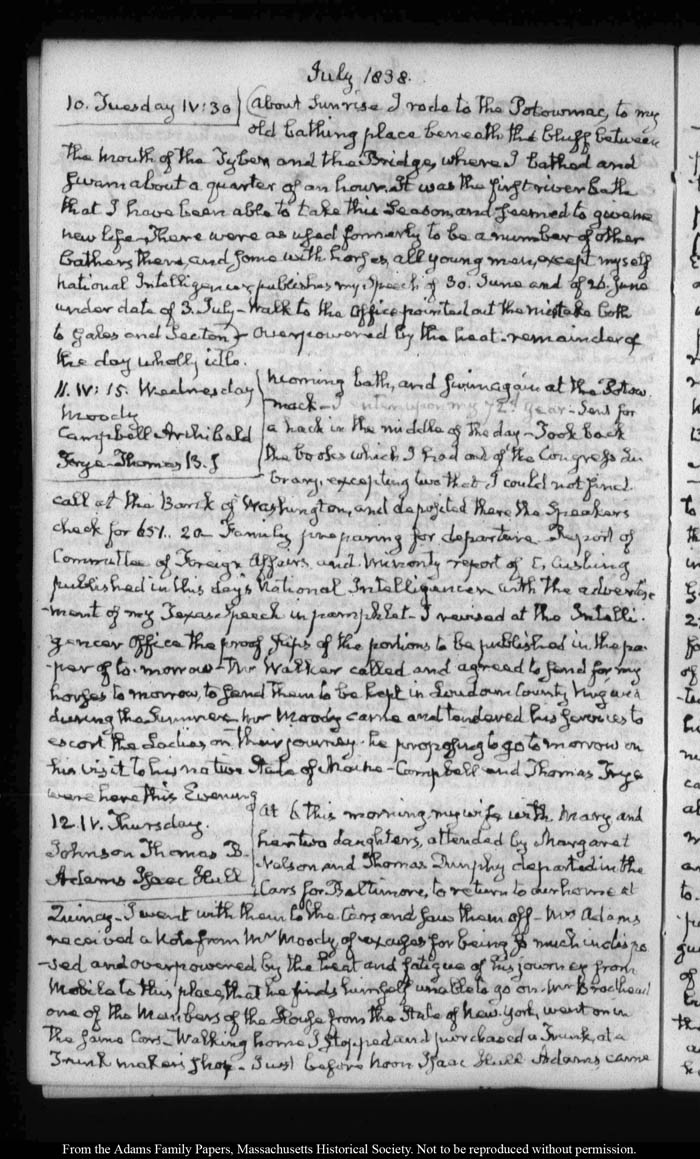 July 1838.
10. Tuesday IV:30 About Sunrise I rode to the Potowmac, to my
old bathing place beneath the bluff between
the mouth of the Tyber and the Bridge, where I bathed and
swam about a quarter of an hour. It was the first river bath
that I have been able to take this Season, and seemed to give me
new life. There were as used formerly to be a number of other
bathers there, and some with horses, all young men, except myself
National Intelligencer publishes my Speech of 30. June and of 26. June
under date of 3. July. Walk to the Office pointed out the mistake both
to Gales and Seaton - Overpowered by the heat. remainder of
the day wholly idle.
11. IV:15. Wednesday
Moody
Campbell - Archibald
Frye - Thomas B. J
Morning bath, and swim again at the Potow-
mack - I enter upon my 72d. year - Sent for
a hack in the middle of the day - Took back
the books which I had out of the Congress Li-
brary, excepting two that I could not find.
call at the Bank of Washington, and deposited there the Speakers
check for 651.. 20 Family, preparing for departure. Report of
Committee of Foreign Affairs, and Minority report of C. Cushing
published in this day's National Intelligencer with the advertise
-ment of my Texas Speech in pamphlet - I revised at the Intelli-
gencer Office the proof slips of the portions to be published in the pa-
-per of to-morrow - Mr Walker called and agreed to send for my
horses to morrow, to send them to be kept in Loudoun County Virginia
during the Summer. Mr Moody came and tendered his services to
escort the Ladies on their journey. he proposing to go to morrow on
his visit to his native State of Maine - Campbell and Thomas Frye
were here this Evening
12. IV. Thursday.
Johnson Thomas B.
Adams Isaac Hull
At 6 this morning, my wife with Mary and
her two daughters, attended by Margaret
Nelson and Thomas Dunphy departed in the
Cars for Baltimore, to return to our home at
Quincy - I went with them to the Cars and saw them off - Mrs Adams
received a Note from Mr Moody, of excuses for being so much indispo
-sed and overpowered by the heat and fatigue of his journey from
Mobile to this place, that he finds himself unable to go on. Mr Brodhead
one of the Members of the House from the State of New-York, went on in
the same Cars - Walking home I stopped and purchased a Trunk, at a
Trunk maker's shop - Just before Noon Isaac Hull Adams came
From the Adams Family Papers, Massachusetts Historical Society. Not to be reproduced without permission.